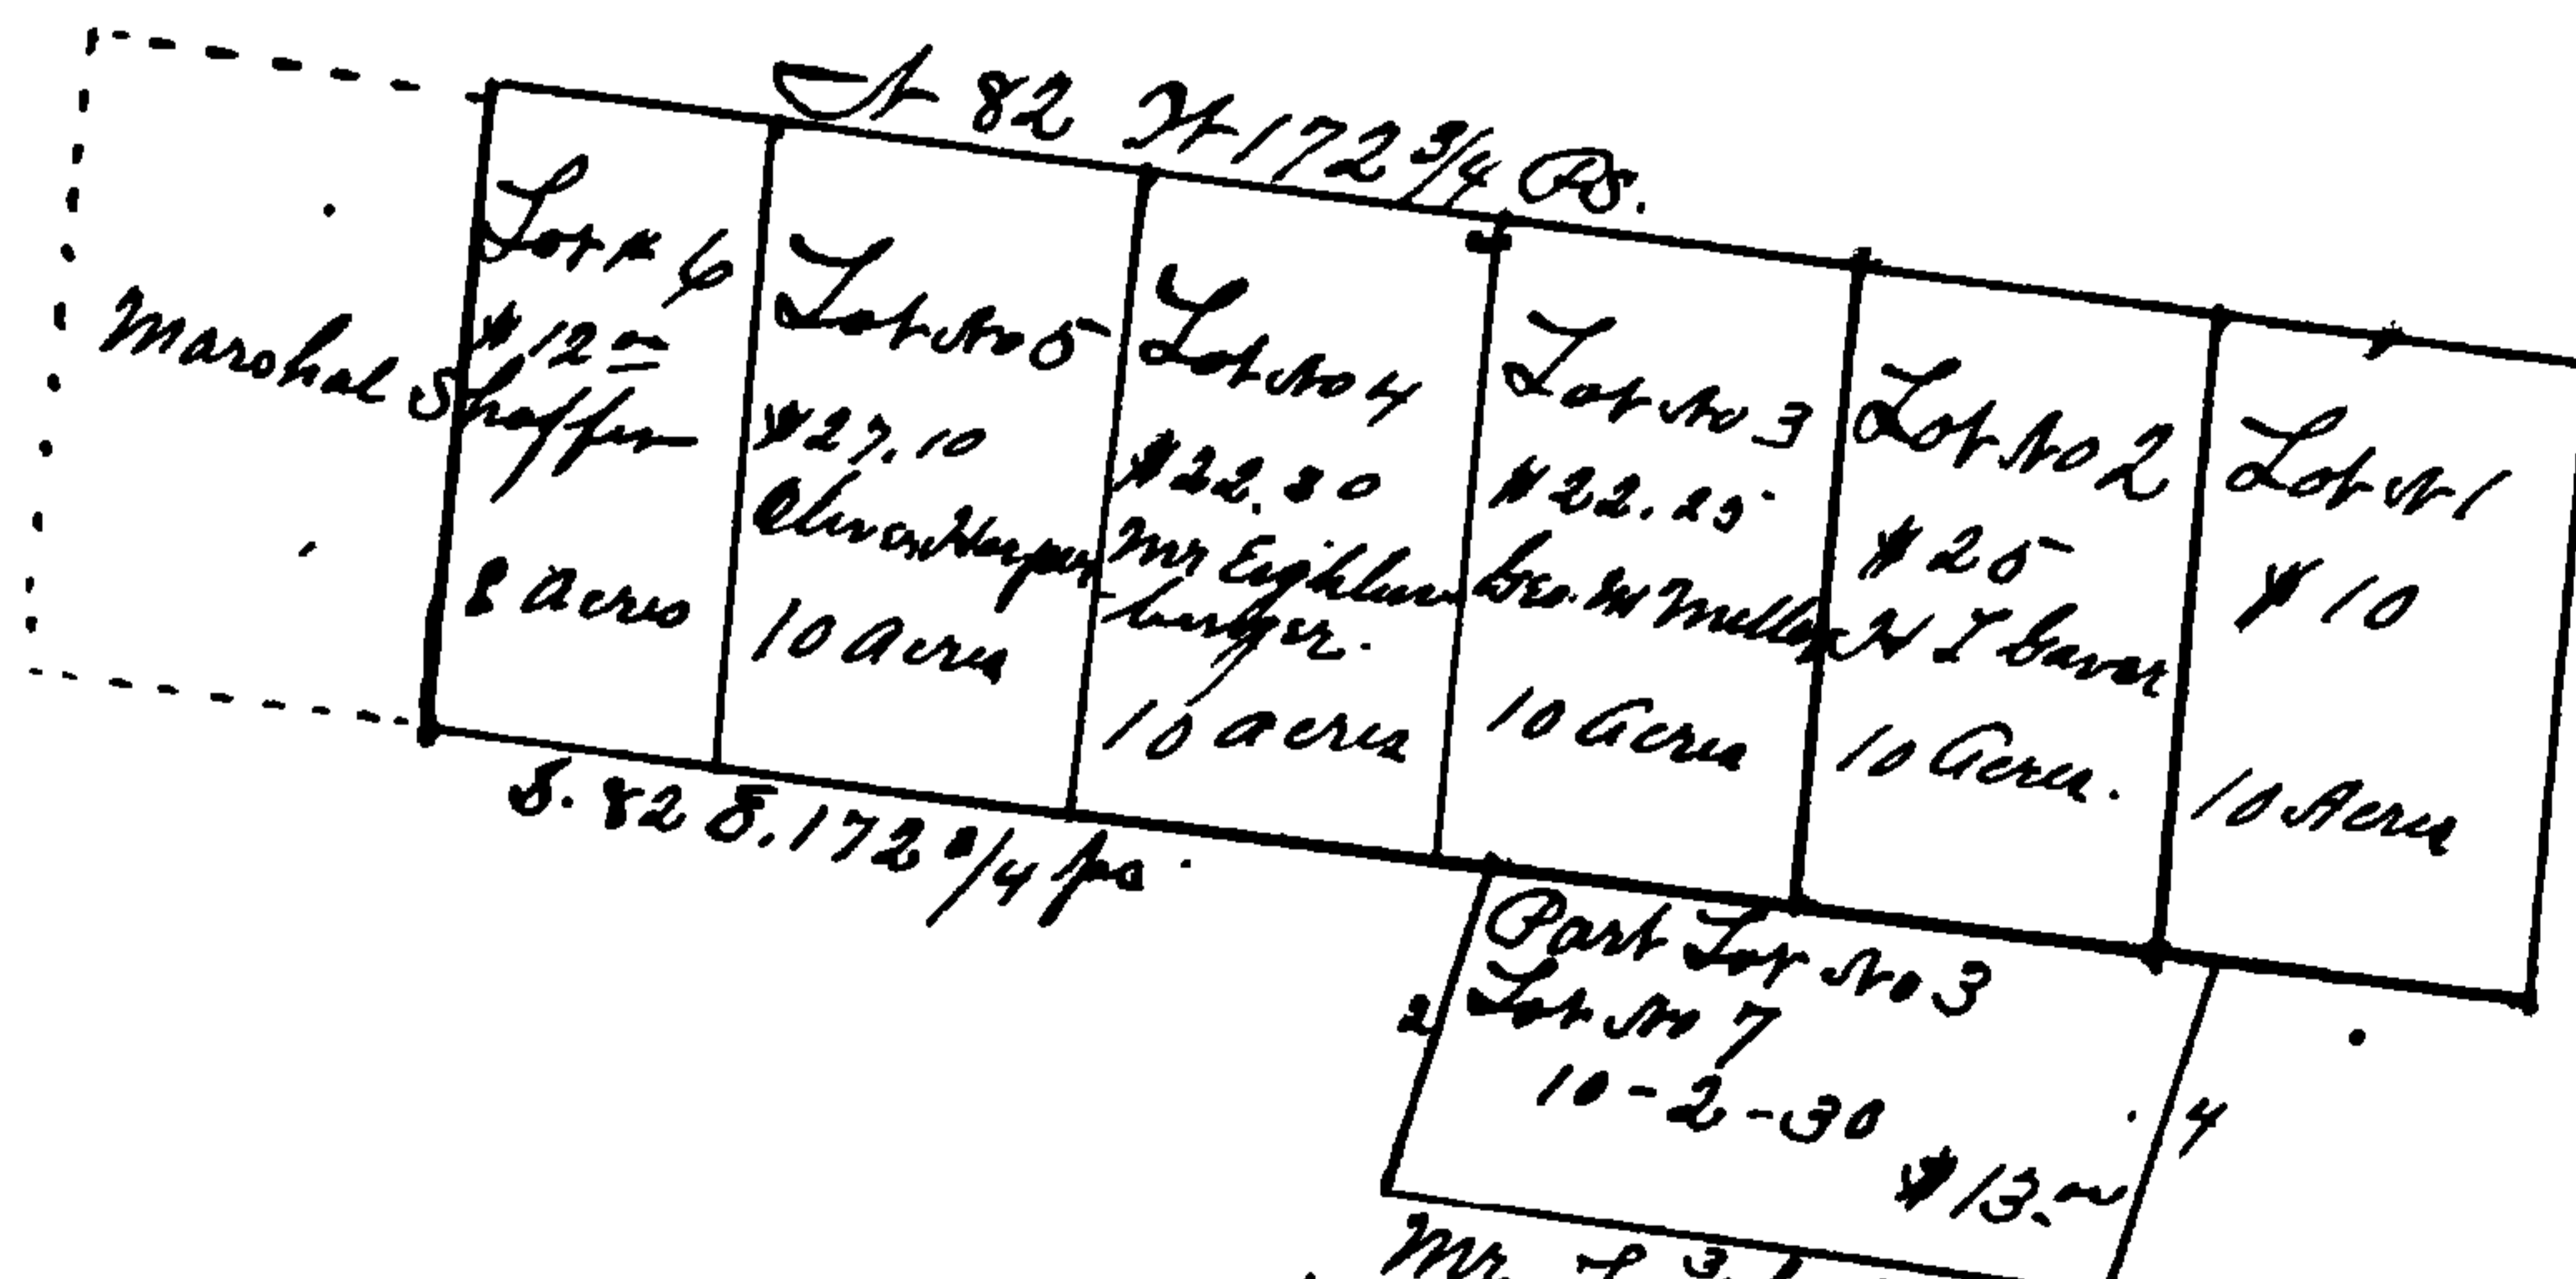 N 82 W 172 3/4 Ps.
Lot # 6
$12 00
Marshal Shaffer
8 Acres
Lot No 5
$27.10
Oliver Harper
10 Acres
Lot No 4
$22.80
Mr Eighlen
berger.
10 acres
Lot No 3
$22.25
Geo. M Miller
10 Acres
Lot No 2
$25
H T Gaver
10 Acres.
Lot N 1
$10
10 Acres
S. 82 E. 172 3/4 ps
Part Lot No 3
2 Lot No 7
10-2-30
4
$13.00
3
Mr